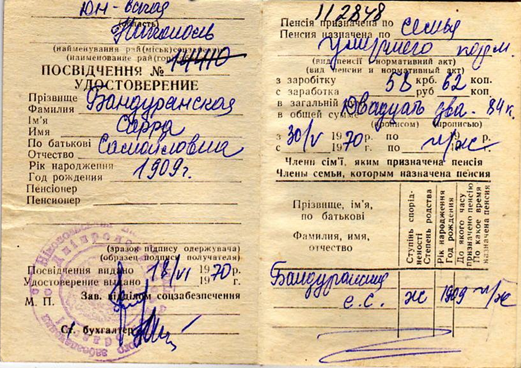 (область)
Никополь
(найменування рай (міськ)
(наименование рай(гор
ПОСВІДЧЕННЯ № 14410
УДОСТОВЕРЕНИЕ
Прізвище
Фамилия Бандуранская
Ім'я
Имя Сарра
По батькові
Отчество Самойловна
Рік народження
Год рождения 1909 г.
Пенсіонер
Пенсионер
(зразок підпису одержувача)
(образец подписи получателя)
Посвідчення видано
Удостоверение выдано 18/VI 1970 р.
г.
Зав. відділом соцзабезпечення
М. П.
Ст. бухгалтер
112848
Пенсія призначена по
Пенсия назначена по семья
умершего
(вид пенсії (нормативний акт)
(вид пенсии и нормативный акт)
з заробітку
с заработка 58 крб. 62 коп.
руб. коп.
в загальній
в общей сумме
(прописом) (прописью)
з
с 30/V 1970 р. по п/ж р.
г. по г.
Члени сім'ї, яким призначена пенсія
Члены семьи, которым назначена пенсия
Прізвище, ім'я,
по батькові
Фамилия, имя,
отчество
Ступінь споріденості
Степень родства
Рік народження
Год рождения
До якого часу призначено пенсію
По какое время назначена пенсия
С.С. ж 1909 п/ж